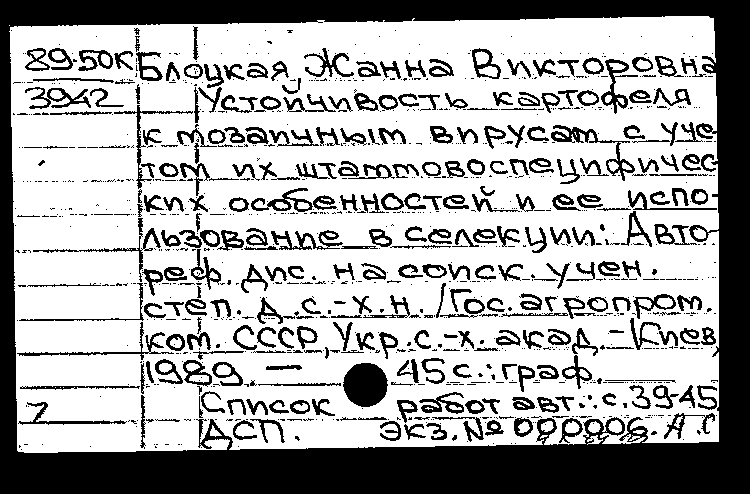 89-50К Блоцкая, Жанна Викторовна
3942 Устойчивость картофеля
к мозаичным вирусам с уче-
том их штаммовоспецифичес-
ких особенностей и ее испо-
льзование в селекции: Авто-
реф. дис. на соиск. учен.
степ. д.с.-х.н. /Гос.агропром.
ком. СССР, Укр.с.-х. акад.-Киев,
1989. — 45 с.: граф.
7 Список работ авт.: с.39-45
ДСП. экз.№ 000006. А.С